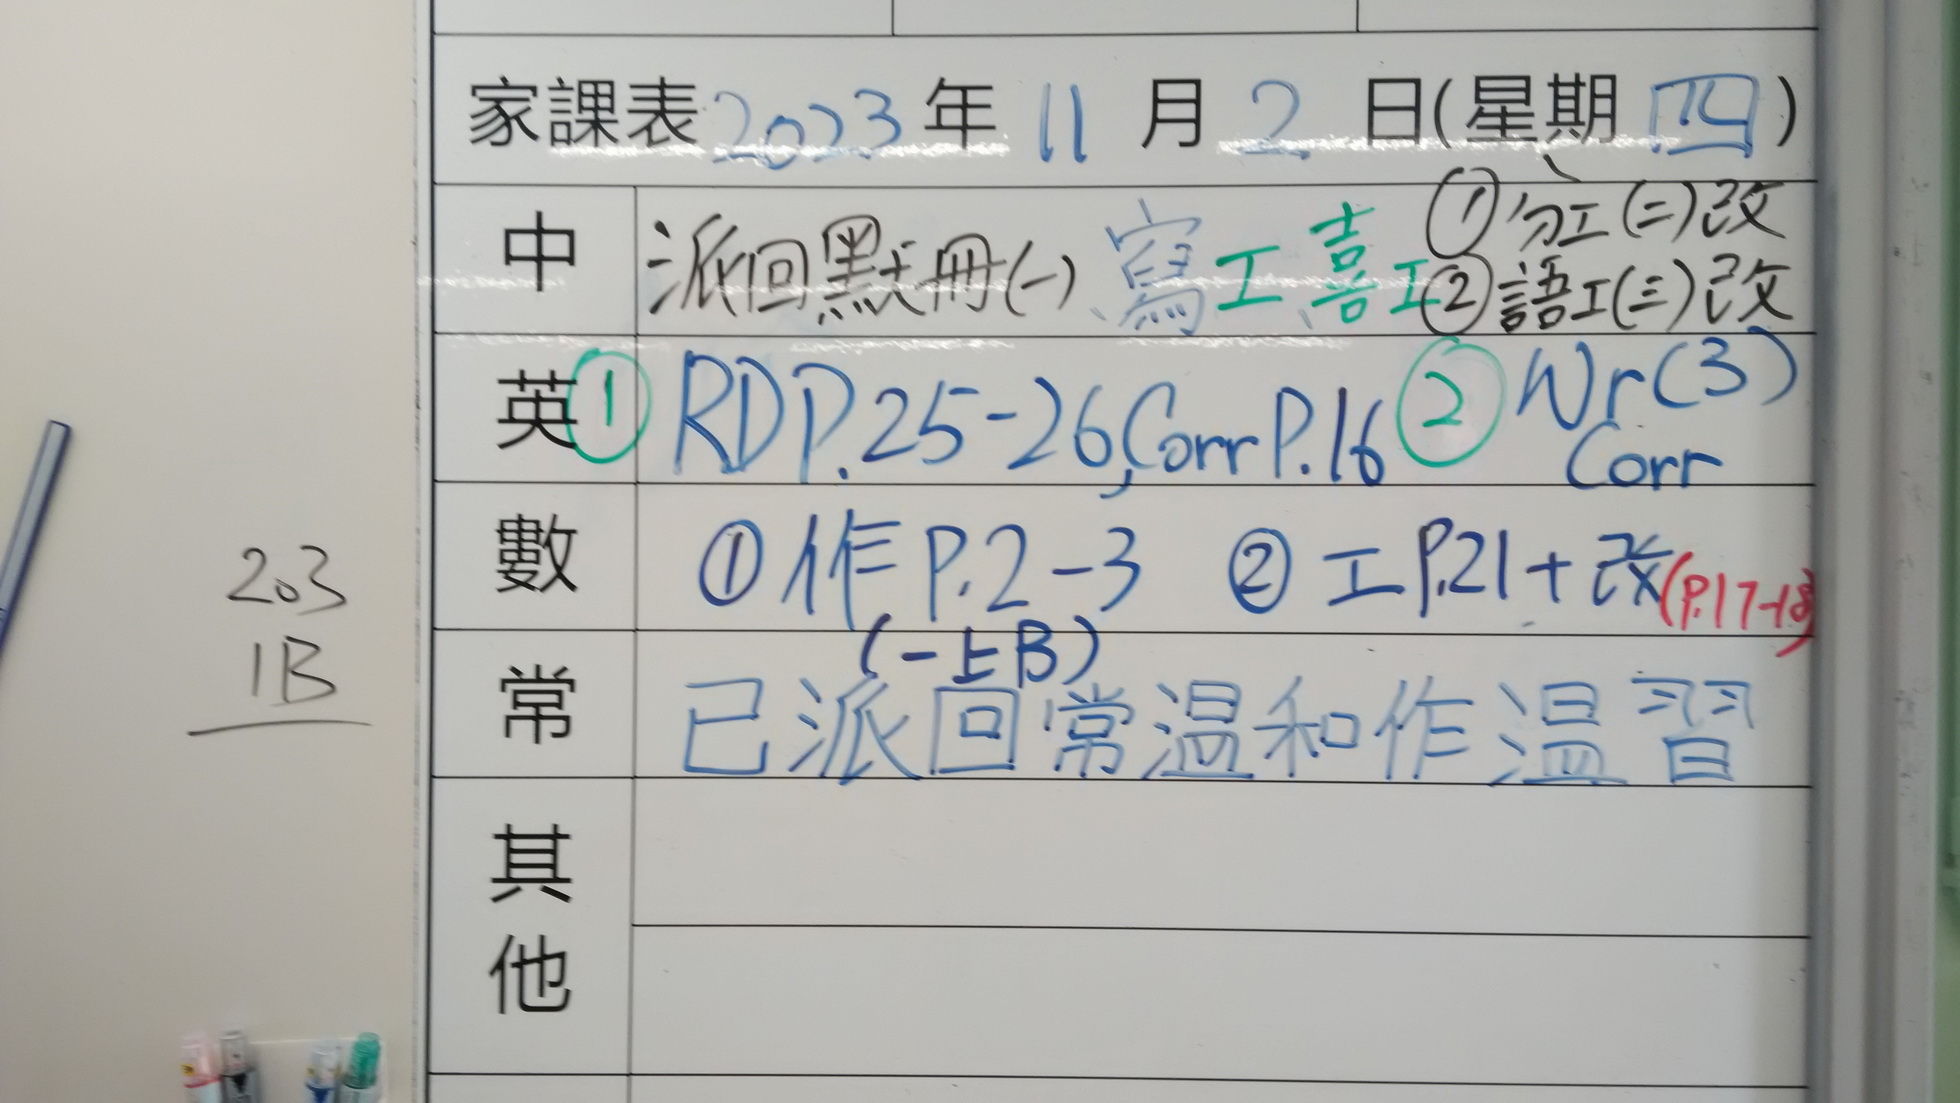 家課表 2023 年 11 月 2 日(星期 四)
中 派回默冊(一)、寫工、喜工 ①分工(二)改
②語工(三)改
英 ① RD P.25-26, Corr P.16 ② Wr(3)
Corr
數 ① 作 P.2-3 ② 工 P.21 + 改 (P.17-18)
(一上B)
常 已派回常溫和作溫習
其
他
203
1B